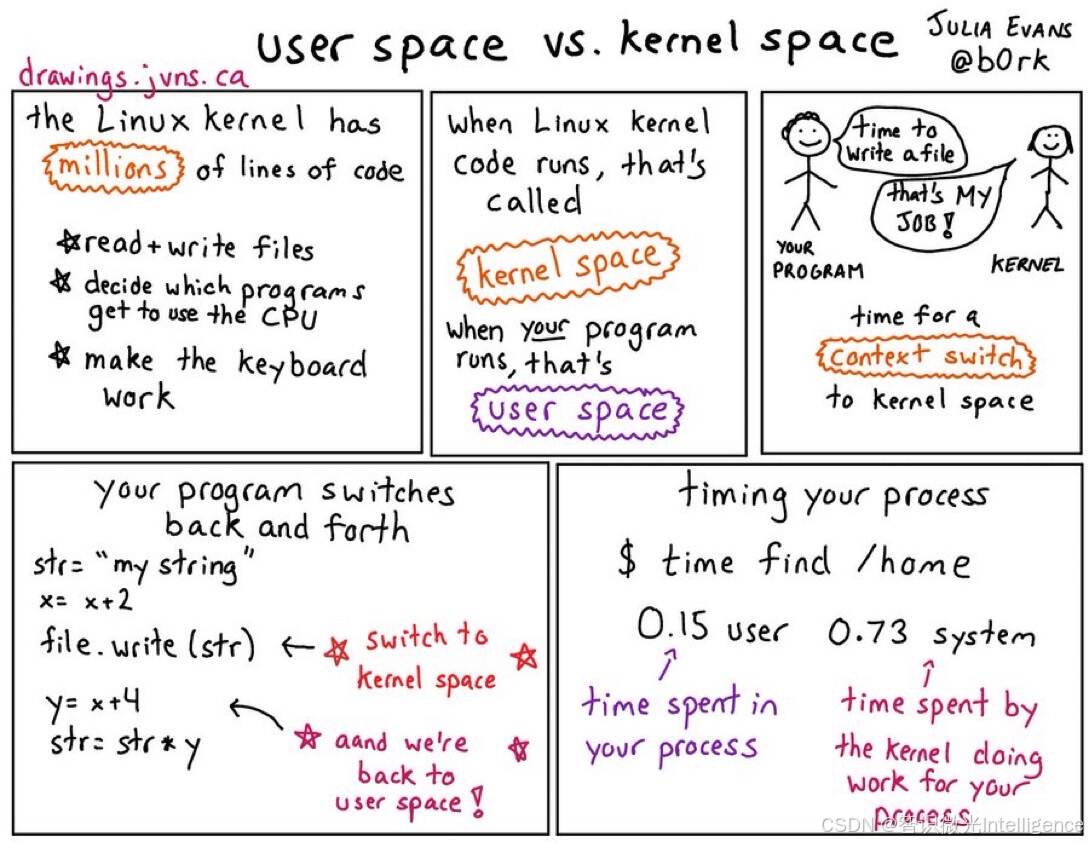 user space vs. kernel space
JULIA EVANS
@b0rk
drawings.jvns.ca
the Linux kernel has
millions of lines of code
☆ read + write files
☆ decide which programs
get to use the CPU
☆ make the keyboard
work
when Linux kernel
code runs, that's
called
kernel space
when your program
runs, that's
user space
time to
write a file
that's MY
JOB!
YOUR
PROGRAM
KERNEL
time for a
context switch
to kernel space
your program switches
back and forth
str= "my string"
x= x+2
file.write(str) ← ☆ switch to ☆
kernel space
y= x+4
str= str * y
☆ aand we're ☆
back to
user space!
timing your process
$ time find /home
0.15 user 0.73 system
time spent in
your process
time spent by
the kernel doing
work for your
process
CSDN @智识微光Intelligence